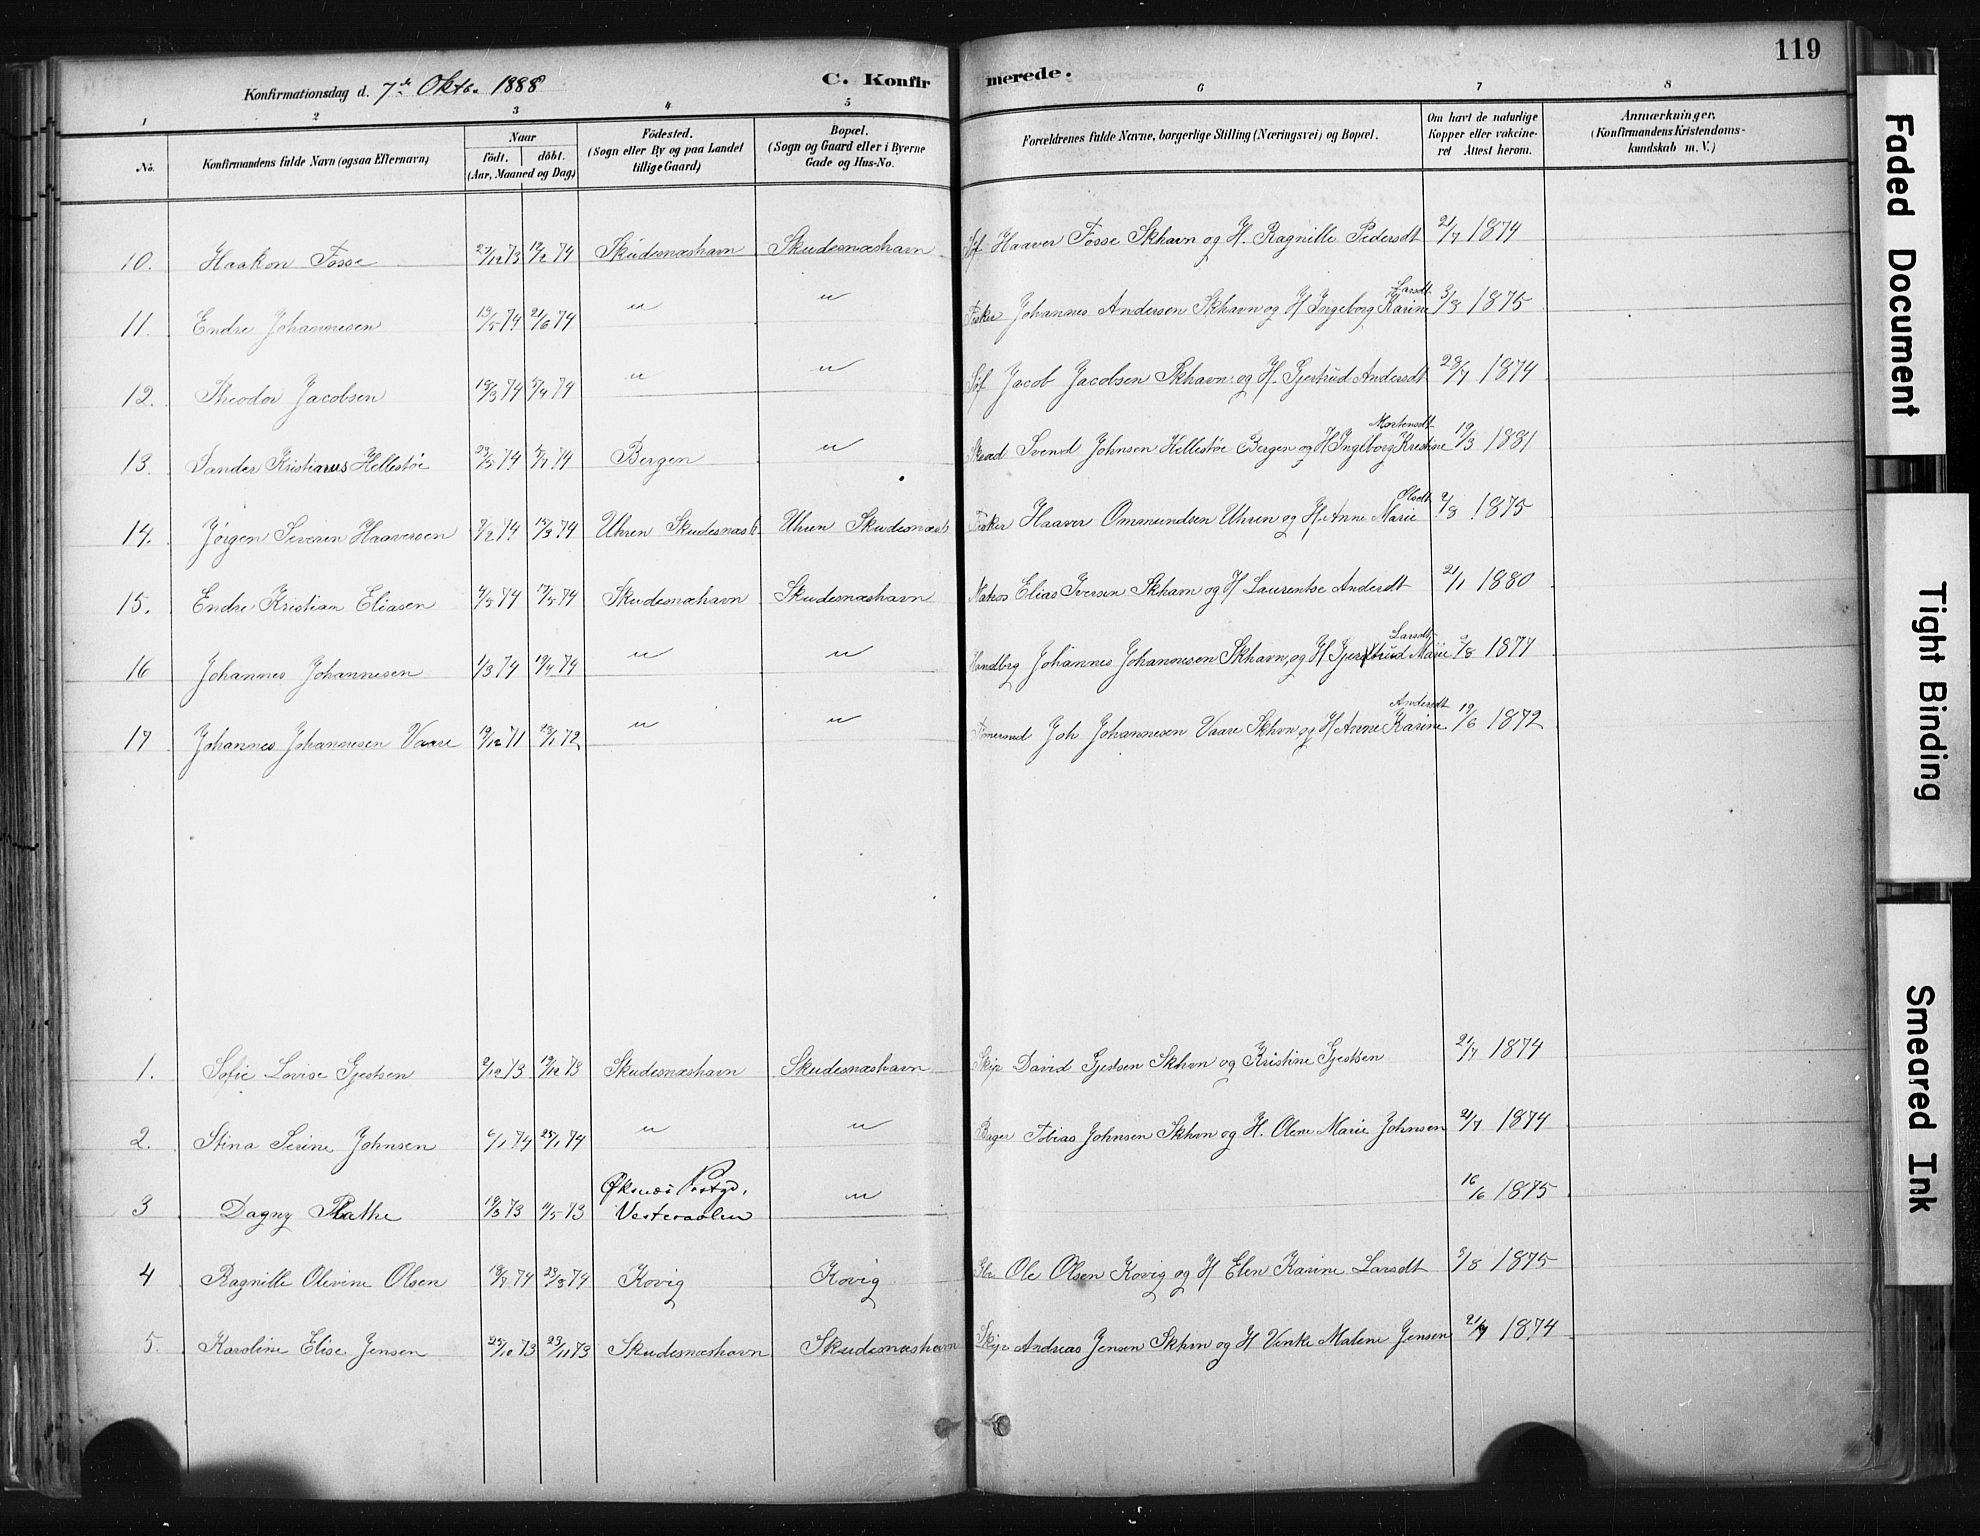 119
Konfirmationsdag d. 7de Oktb. 1888
C. Konfirmerede.
1 2 3 4 5 6 7 8
No.
Konfirmandens fulde Navn (ogsaa Efternavn)
Naar
födt. döbt.
(Aar, Maaned og Dag)
Födested.
(Sogn eller By og paa Landet
tillige Gaard)
Bopæl.
(Sogn og Gaard eller i Byerne
Gade og Hus-No.
Forældrenes fulde Navne, borgerlige Stilling (Næringsvei) og Bopæl.
Om havt de naturlige
Kopper eller vakcine-
ret Attest herom.
Anmærkninger.
(Konfirmandens Kristendoms-
kundskab m. V.)
10. Haakon Fosse 27/12 73 12/2 74 Skudesnæshavn Skudesnæshavn Søf Haaver Fosse Skhavn og H. Ragnille Pedersdt 21/7 1874
11. Endre Johannesen 13/5 74 21/6 74 " " Fisker Johannes Andersen Skhavn og H Ingeborg Karine Larsdt 3/8 1875
12. Theodor Jacobsen 74 74 " " Søf Jacob Jacobsen Skhavn og H. Gjertrud Andersdt 1874
13. Sander Kristianus Hellestøe 23/5 74 74 Bergen " Svend Johnsen Hellestøe Bergen og H Ingeborg Kristine Mortensdt 19/3 1881
14. Jørgen Severin Haaversen 74 74 Uhren Skudesnæs Uhren Skudesnæs Fisker Haaver Ommundsen Uhren og H. Anne Marie Olsdt 1875
15. Endre Kristian Eliasen 4/5 74 17/5 74 Skudesnæhavn Skudesnæshavn Matros Elias Iversen Skhavn og H Laurentse Andersdt 21/1 1880
16 Johannes Johannesen 1/3 74 74 " " Handberg Johannes Johannesen Skhavn, og H Gjertrud Marie Larsdt 1877
17 Johannes Johannesen Vaare 19/12 71 72 " " Tømermd Joh Johannesen Vaare Skhvn og H Anne Karine Andersdt 19/6 1872
1. Sofie Lovise Gjestsen 73 19/12 73 Skudesnæshavn Skudesnæshavn Skip David Gjestsen Skhvn og Kristine Gjestsen 21/7 1874
2. Stina Serine Johnsen 6/1 74 25/1 74 " " Bager Tobias Johnsen Skhvn og H. Olene Marie Johnsen 21/7 1874
3 Dagny Rathe 19/3 73 11/5 73 Øksnæs Prstgd. Vesteraalen " 16/6 1875
4 Ragnille Olivine Olsen 74 74 Kovig Kovig Gbr Ole Olsen Kovig og H Elen Karine Larsdt 3/8 1875
5. Karoline Elise Jensen 25/10 73 23/11 73 Skudesnæshavn Skudesnæshavn Skip Andreas Jensen Skhvn og H Venke Malene Jensen 21/7 1874
Faded Document
Tight Binding
Smeared Ink